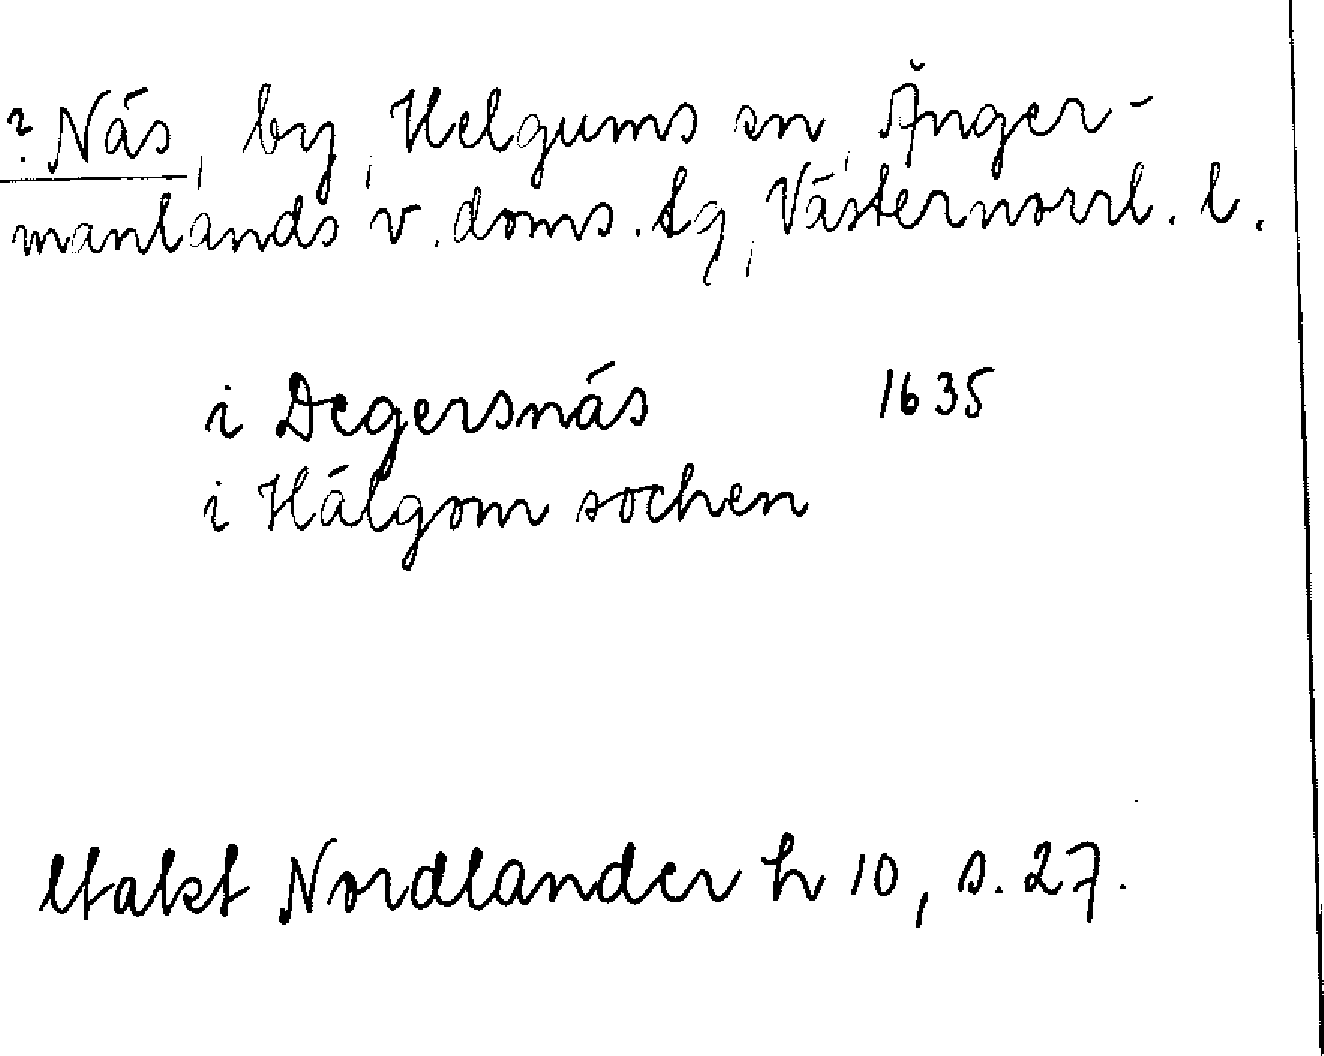 ? Näs, by, Helgums sn, Ånger-
manlands v. doms. tg, Västernorrl. l.
i Degersnäs 1635
i Hälgom sochen
Nordlander h 10, s. 27.